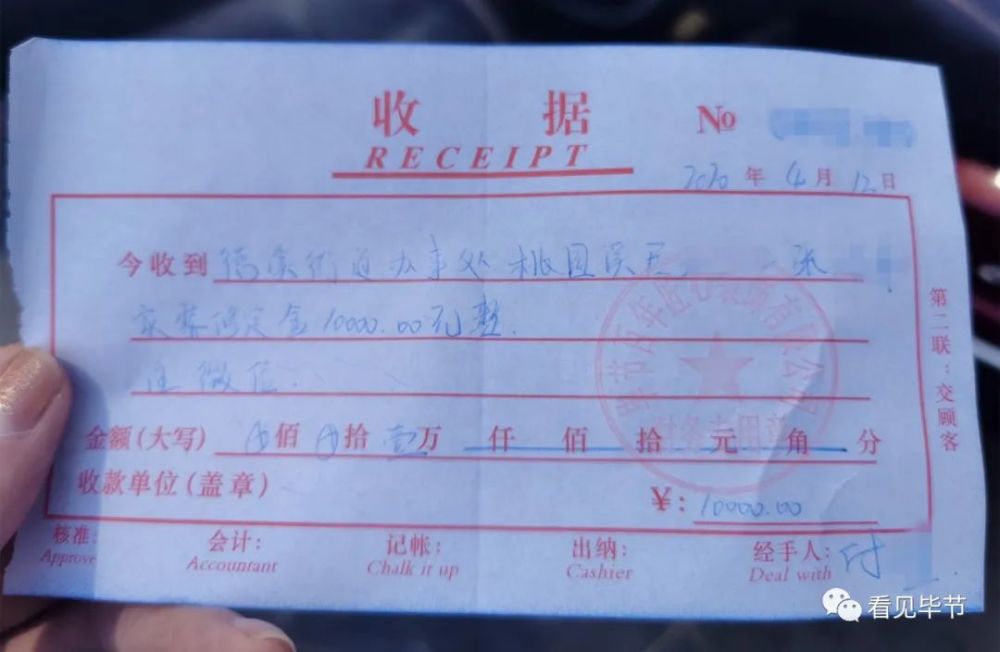 收 据 No
RECEIPT
2020 年 4 月 12 日
今收到 街道办事处桃园 一 张
装修定金10000.00元整.
微信.
金额(大写) 佰 拾 壹万 仟 佰 拾 元 角 分
收款单位(盖章)
¥: 10000.00
核准: 会计: 记帐: 出纳: 经手人: 付
Approve Accountant Chalk it up Cashier Deal with
第二联:交顾客
毕节百年匠心装饰有限公司
财务专用章
看见毕节